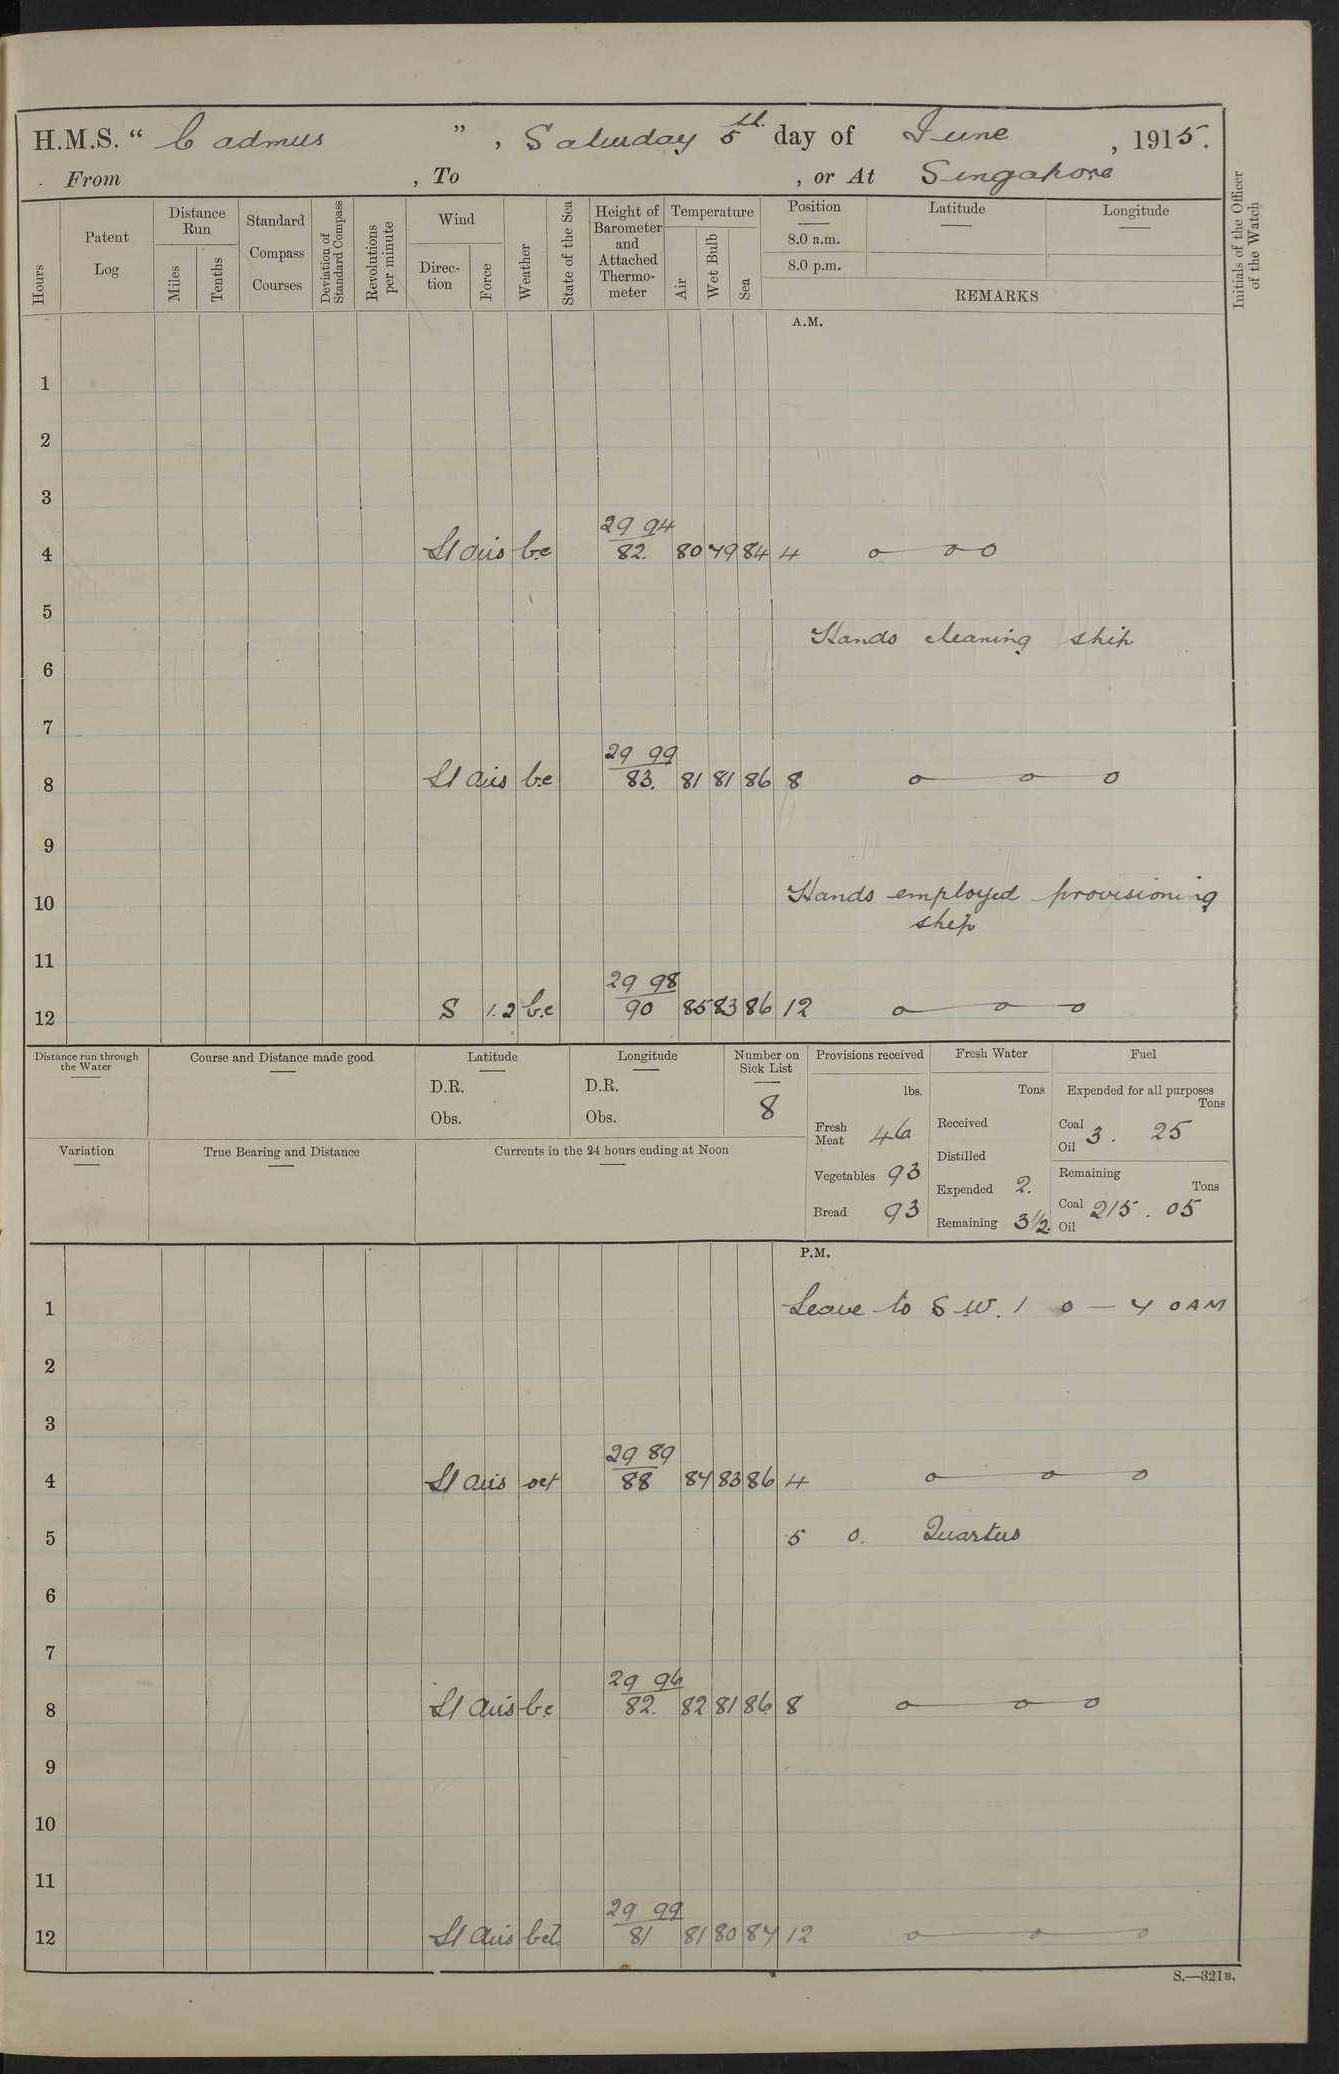 H.M.S. “ Cadmus ” , Saturday 5th day of June , 1915.
From , To , or At Singapore
Hours
Patent Log
Distance Run
Miles
Tenths
Standard Compass Courses
Deviation of Standard Compass
Revolutions per minute
Wind
Direction
Force
Weather
State of the Sea
Height of Barometer and Attached Thermometer
Temperature
Air
Wet Bulb
Sea
Position
8.0 a.m.
8.0 p.m.
Latitude
Longitude
REMARKS
Initials of the Officer of the Watch
A.M.
1
2
3
29 94
4 Lt airs bc 82. 80 79 84 4 o o o
5
Hands cleaning ship
6
7
29 99
8 Lt airs bc 83. 81 81 86 8 o o o
9
10 Hands employed provisioning
ship
11
29 98
12 S 1.2 b.c 90 85 83 86 12 o o o
Distance run through the Water
Course and Distance made good
Latitude
D.R.
Obs.
Longitude
D.R.
Obs.
Number on Sick List
8
Variation
True Bearing and Distance
Currents in the 24 hours ending at Noon
Provisions received
lbs.
Fresh Meat 46
Vegetables 93
Bread 93
Fresh Water
Tons
Received
Distilled
Expended 2.
Remaining 3½.
Fuel
Expended for all purposes
Tons
Coal 3. 25
Oil
Remaining
Tons
Coal 215. 05
Oil
P.M.
1 Leave to S W. 1 0 — 7 0 AM
2
3
29 89
4 Lt airs oct 88 84 83 86 4 o o o
5 5 0. Quartus
6
7
29 96
8 Lt airs bc 82. 82 81 86 8 o o o
9
10
11
29 99
12 Lt airs bcl 81 81 80 84 12 o o o
S.—321B.